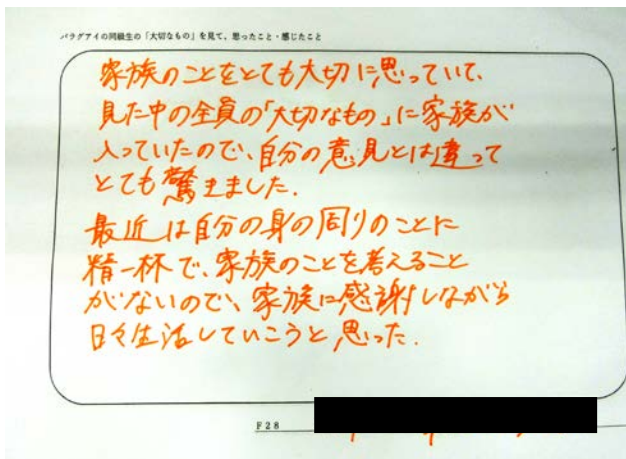 パラグアイの同級生の「大切なもの」を見て、思ったこと・感じたこと
家族のことをとても大切に思っていて、
見た中の全員の「大切なもの」に家族が
入っていたので、自分の意見とは違って
とても驚きました.
最近は自分の身の周りのことに
精一杯で、家族のことを考えること
がないので、家族に感謝しながら
日々生活していこうと思った.
F28